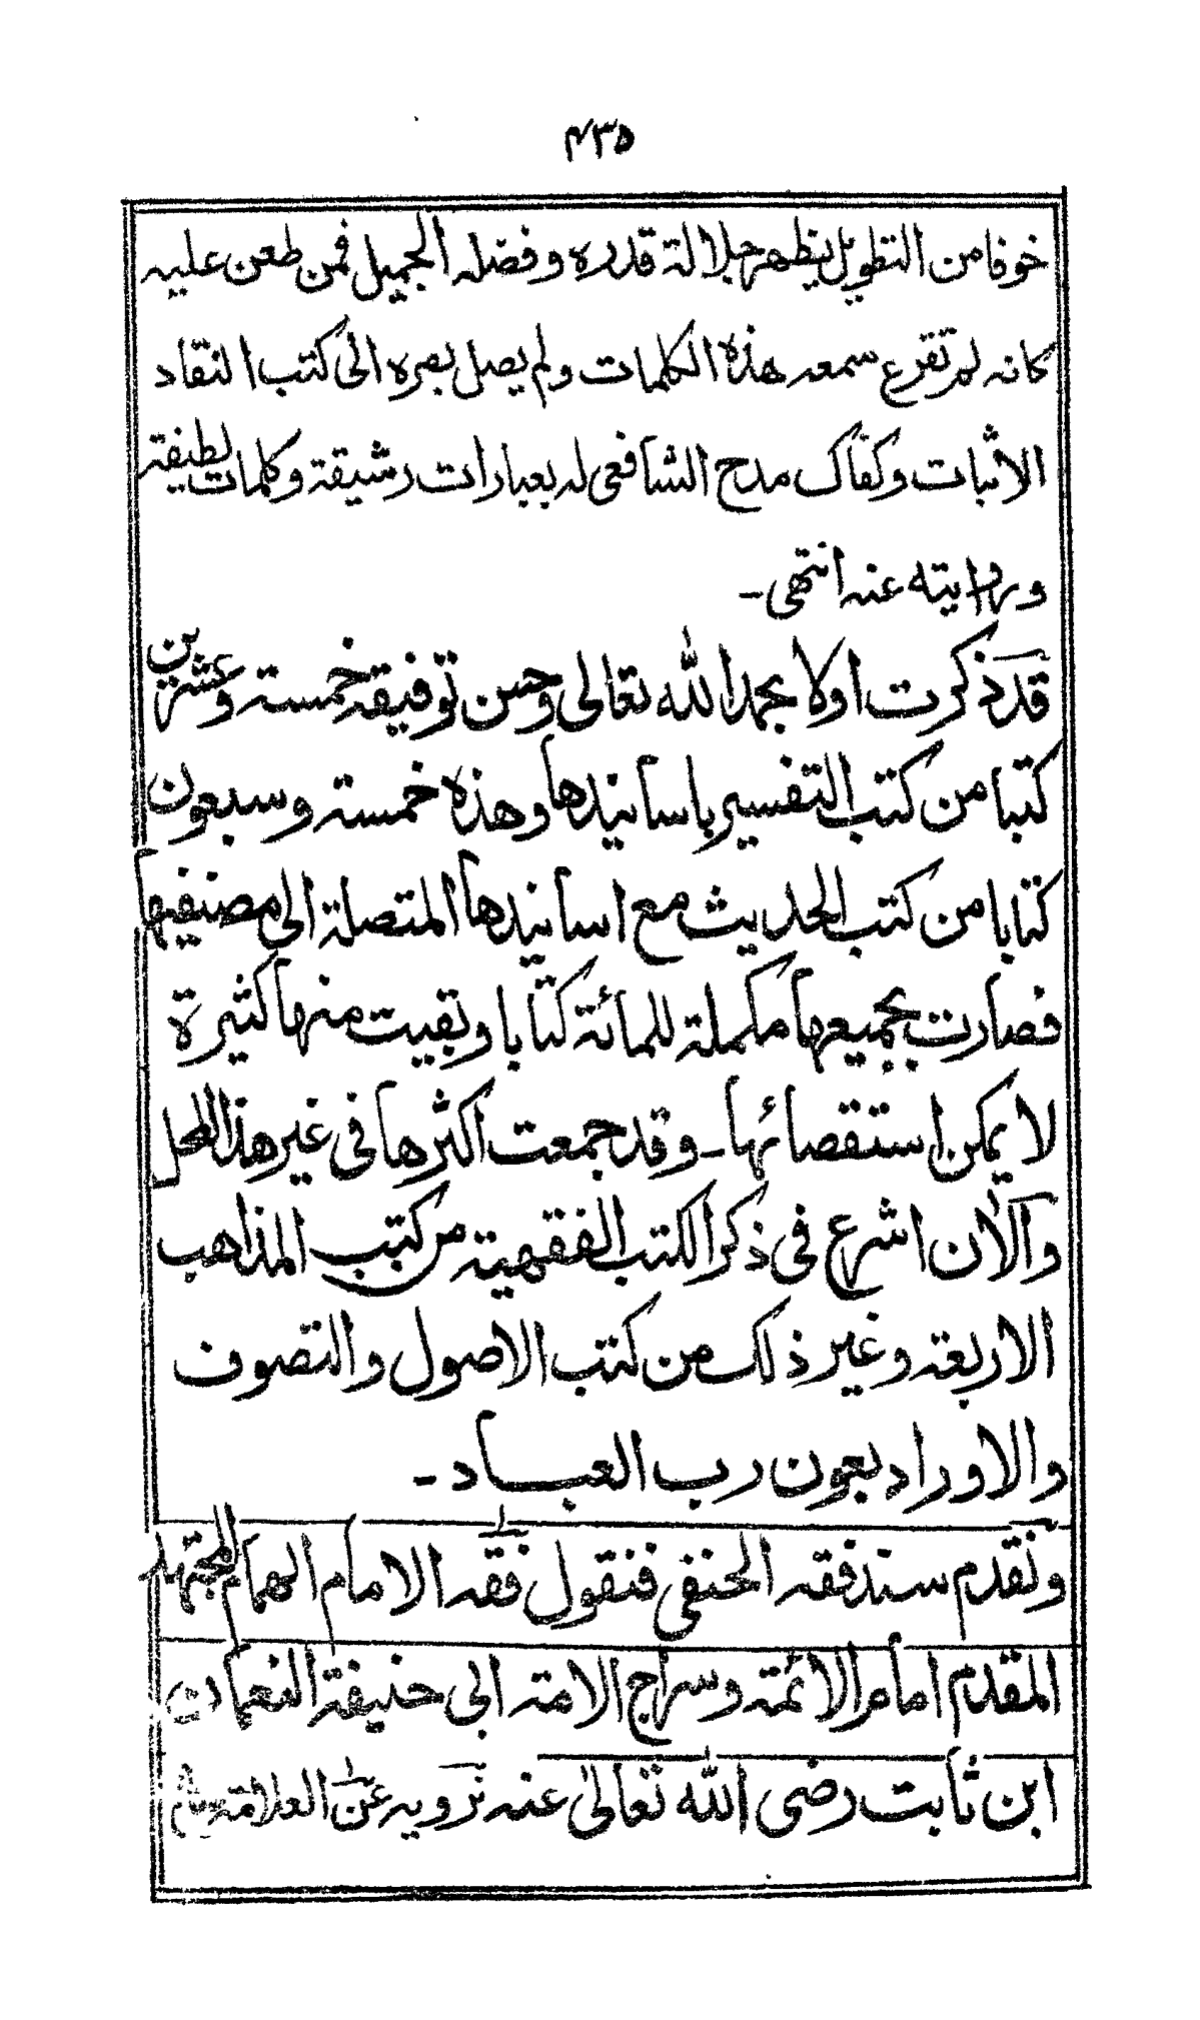 ٤٣٥
خوفا من التطويل يظهر جلالة قدره وفضله الجميل فمن طعن عليه
كانه لم تقرع سمعه هذه الكلمات ولم يصل بصره الى كتب النقاد
الاثبات وكفاك مدح الشافعى له بعبارات رشيقة وكلمات لطيفة
وروايته عنه انتهى -
قد ذكرت اولا بحمد الله تعالى وحسن توفيقه خمسة وعشرين
كتبا من كتب التفسير باسانيدها وهذه خمسة وسبعون
كتابا من كتب الحديث مع اسانيدها المتصلة الى مصنفيها
فصارت بجميعها مكملة للمائة كتابا وبقيت منها كثيرة
لا يمكن استقصائها - وقد جمعت اكثرها فى غير هذا المحل
والآن اشرع فى ذكر الكتب الفقهية من كتب المذاهب
الاربعة وغير ذلك من كتب الاصول والتصوف
والاوراد بعون رب العباد -
ونقدم سند فقه الحنفى فنقول فقه الامام الهمام المجتهد
المقدم امام الائمة وسراج الامة ابى حنيفة النعمان
ابن ثابت رضى الله تعالى عنه نرويه عن العلامة